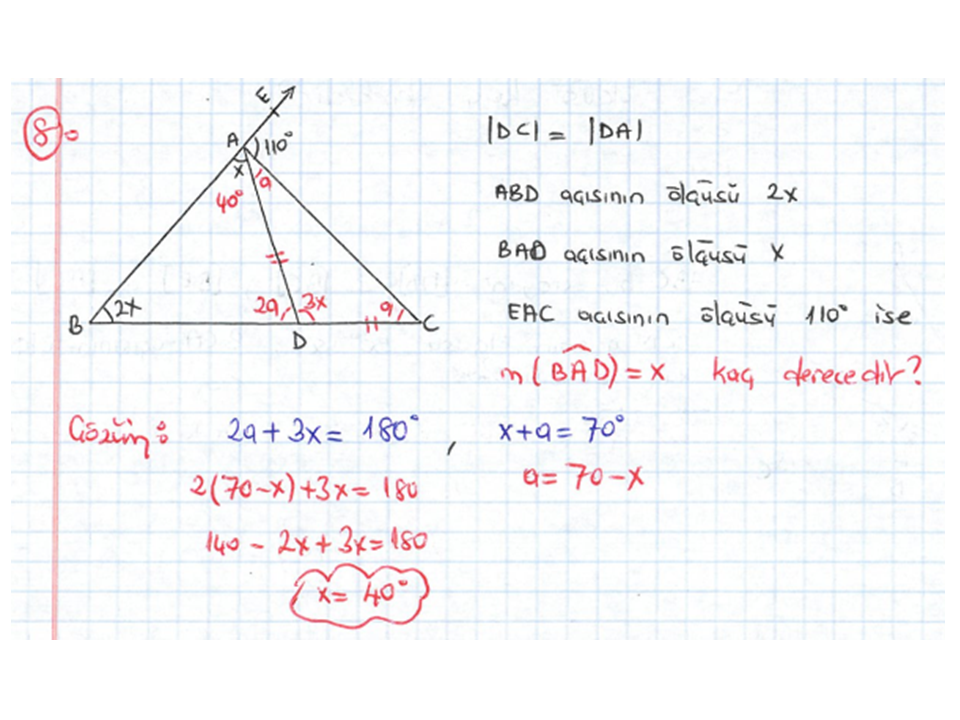 8-
E
A 110°
x a
40°
2x 2a 3x a
B D C
|DC| = |DA|
ABD açısının ölçüsü 2x
BAD açısının ölçüsü x
EAC açısının ölçüsü 110° ise
m(BAD) = x kaç derecedir?
Çözüm: 2a + 3x = 180° , x + a = 70°
2(70 - x) + 3x = 180 a = 70 - x
140 - 2x + 3x = 180
x = 40°